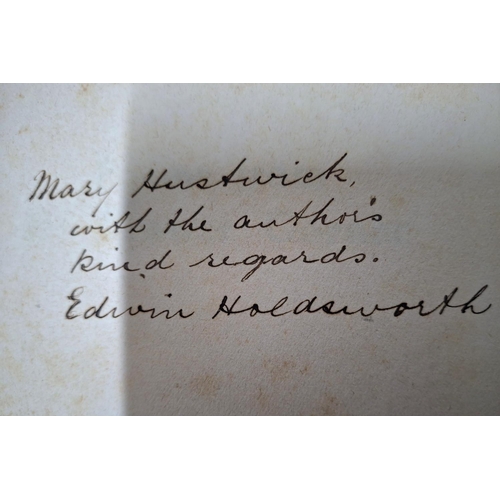 Mary Hustwick,
with the author's
kind regards.
Edwin Holdsworth